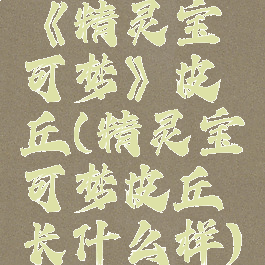 《精灵宝
可梦》皮
丘(精灵宝
可梦皮丘
长什么样)